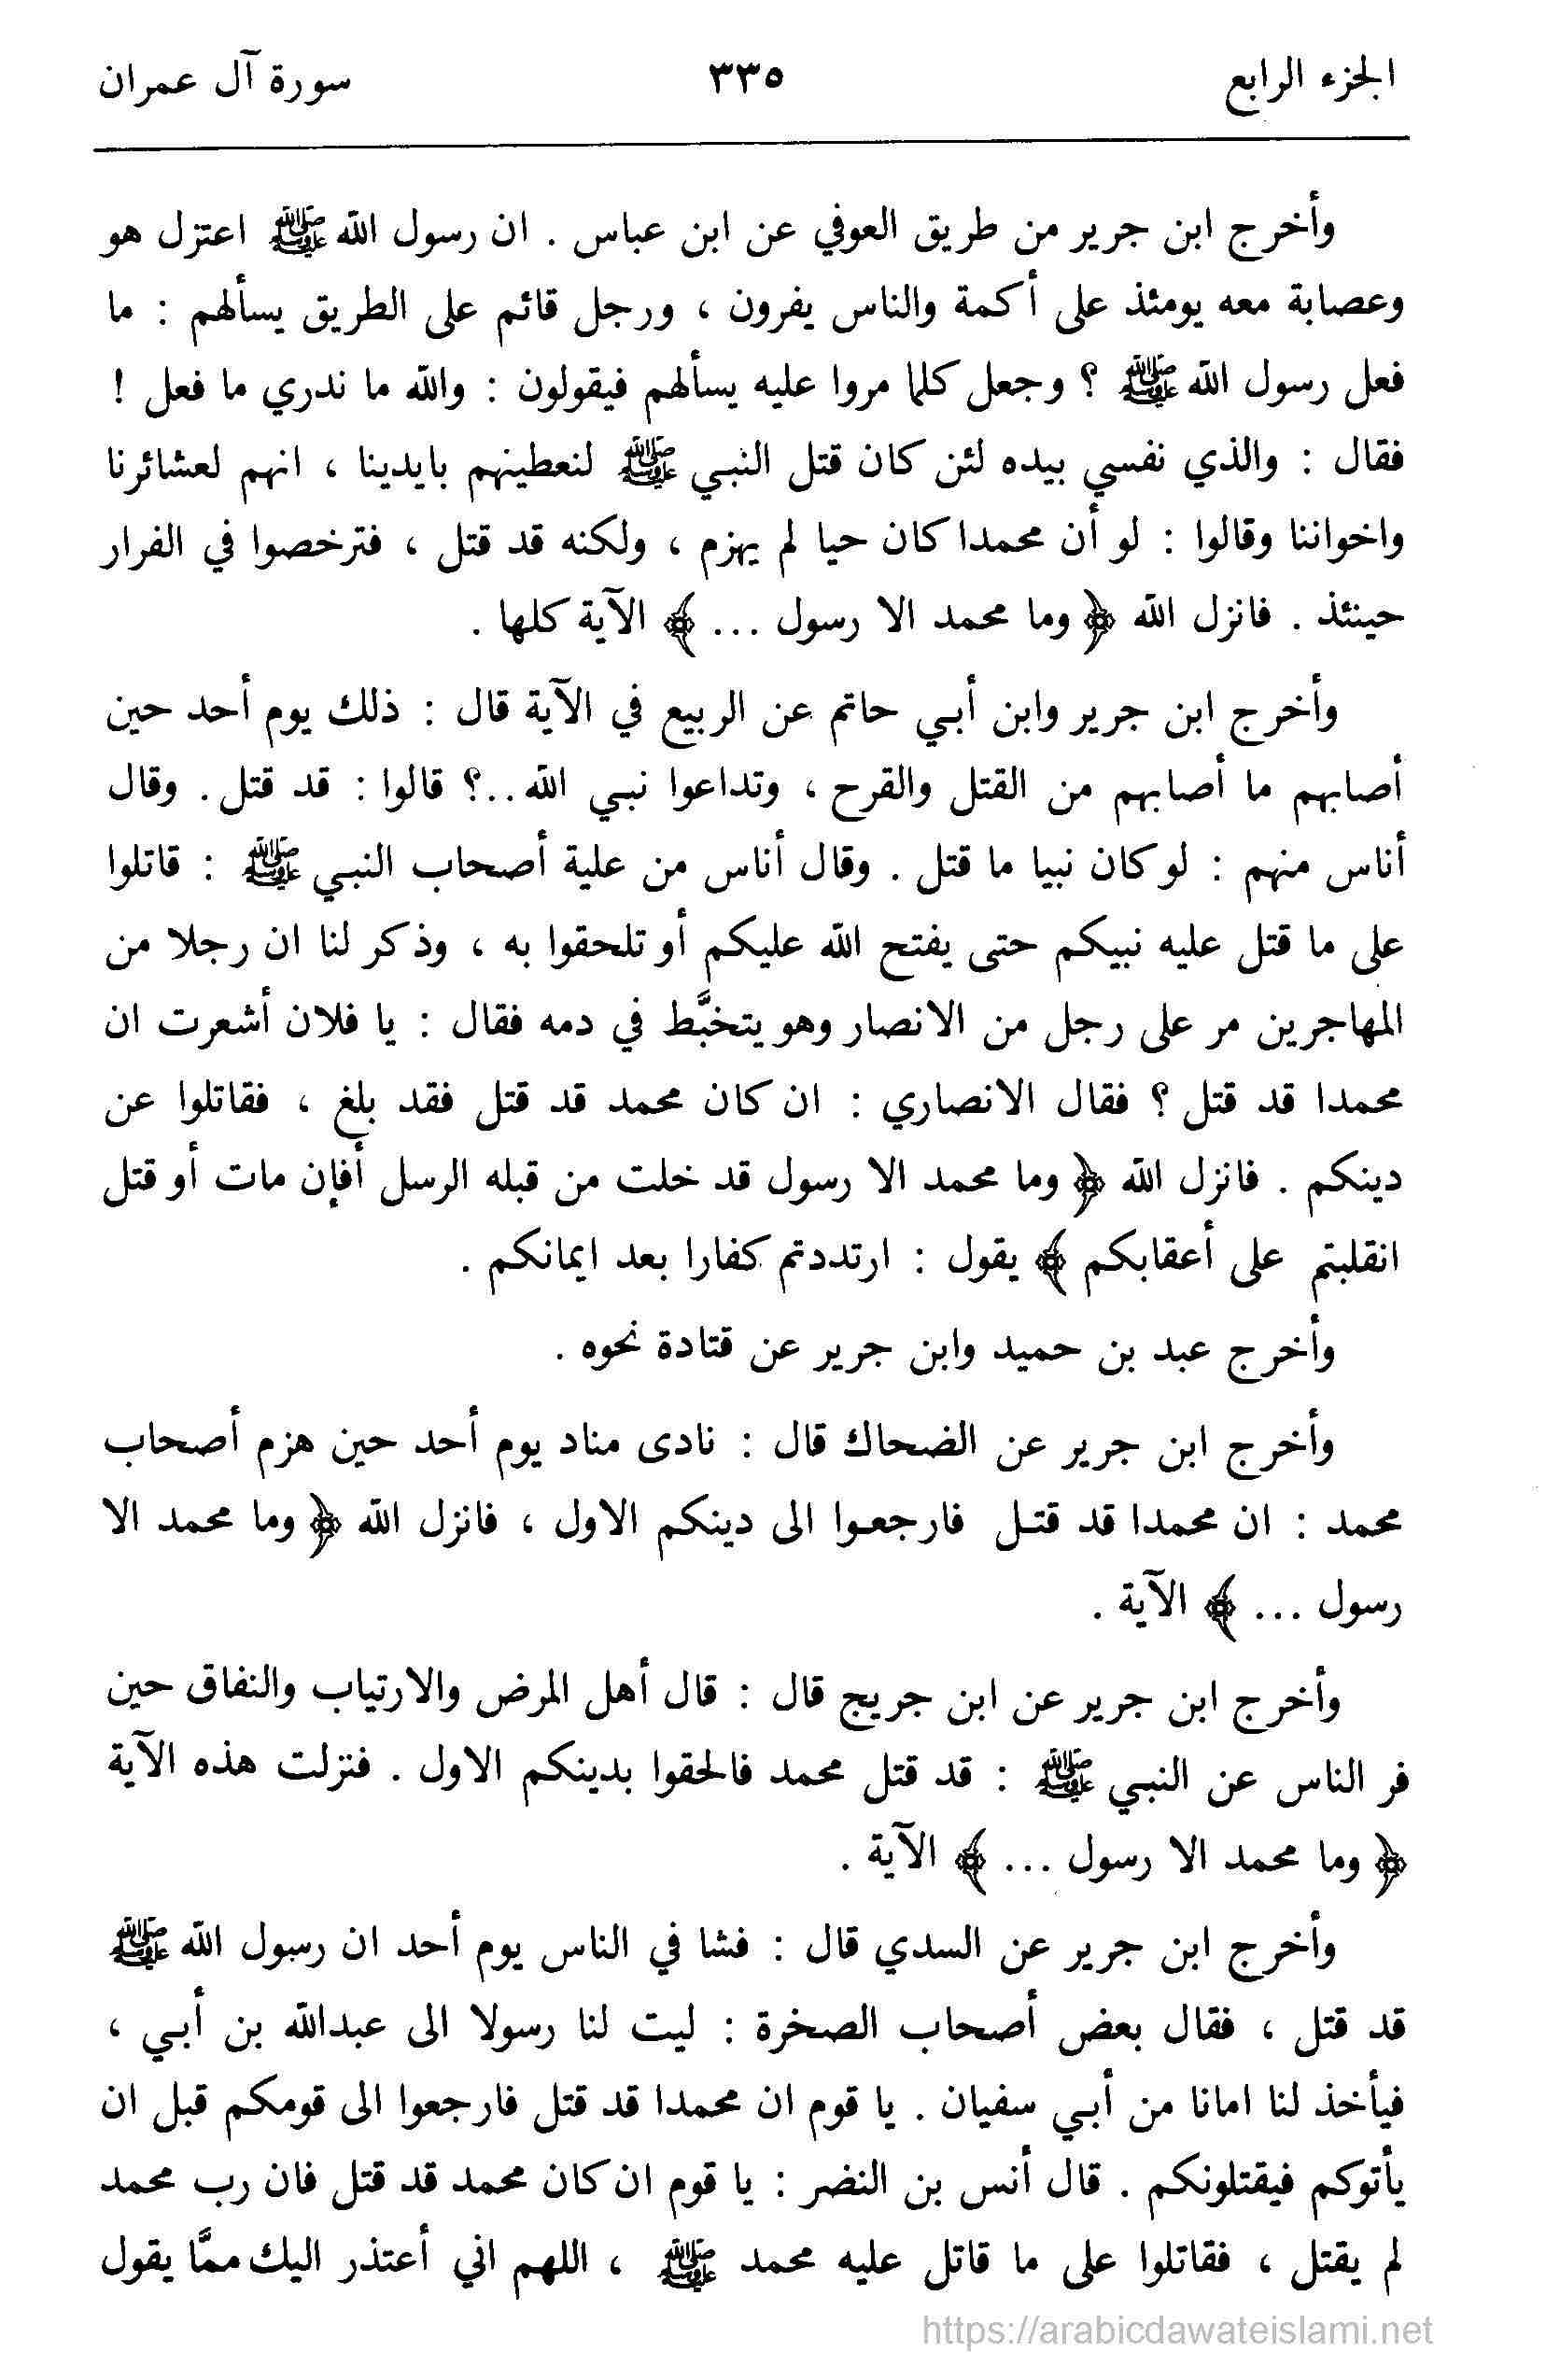 الجزء الرابع ٣٣٥ سورة آل عمران
وأخرج ابن جرير من طريق العوفي عن ابن عباس . ان رسول الله ﷺ اعتزل هو
وعصابة معه يومئذ على أكمة والناس يفرون ، ورجل قائم على الطريق يسألهم : ما
فعل رسول الله ﷺ ؟ وجعل كلما مروا عليه يسألهم فيقولون : والله ما ندري ما فعل !
فقال : والذي نفسي بيده لئن كان قتل النبي ﷺ لنعطينهم بايدينا ، انهم لعشائرنا
واخواننا وقالوا : لو أن محمدا كان حيا لم يهزم ، ولكنه قد قتل ، فترخصوا في الفرار
حينئذ . فانزل الله ﴿ وما محمد الا رسول ... ﴾ الآية كلها .
وأخرج ابن جرير وابن أبي حاتم عن الربيع في الآية قال : ذلك يوم أحد حين
أصابهم ما أصابهم من القتل والقرح ، وتداعوا نبي الله ..؟ قالوا : قد قتل . وقال
أناس منهم : لو كان نبيا ما قتل . وقال أناس من علية أصحاب النبي ﷺ : قاتلوا
على ما قتل عليه نبيكم حتى يفتح الله عليكم أو تلحقوا به ، وذكر لنا ان رجلا من
المهاجرين مر على رجل من الانصار وهو يتخبَّط في دمه فقال : يا فلان أشعرت ان
محمدا قد قتل ؟ فقال الانصاري : ان كان محمد قد قتل فقد بلغ ، فقاتلوا عن
دينكم . فانزل الله ﴿ وما محمد الا رسول قد خلت من قبله الرسل أفإن مات أو قتل
انقلبتم على أعقابكم ﴾ يقول : ارتددتم كفارا بعد ايمانكم .
وأخرج عبد بن حميد وابن جرير عن قتادة نحوه .
وأخرج ابن جرير عن الضحاك قال : نادى مناد يوم أحد حين هزم أصحاب
محمد : ان محمدا قد قتل فارجعوا الى دينكم الاول ، فانزل الله ﴿ وما محمد الا
رسول ... ﴾ الآية .
وأخرج ابن جرير عن ابن جريج قال : قال أهل المرض والارتياب والنفاق حين
فر الناس عن النبي ﷺ : قد قتل محمد فالحقوا بدينكم الاول . فنزلت هذه الآية
﴿ وما محمد الا رسول ... ﴾ الآية .
وأخرج ابن جرير عن السدي قال : فشا في الناس يوم أحد ان رسول الله ﷺ
قد قتل ، فقال بعض أصحاب الصخرة : ليت لنا رسولا الى عبدالله بن أبي ،
فيأخذ لنا امانا من أبي سفيان . يا قوم ان محمدا قد قتل فارجعوا الى قومكم قبل ان
يأتوكم فيقتلونكم . قال أنس بن النضر : يا قوم ان كان محمد قد قتل فان رب محمد
لم يقتل ، فقاتلوا على ما قاتل عليه محمد ﷺ ، اللهم اني أعتذر اليك ممَّا يقول
https://arabicdawateislami.net